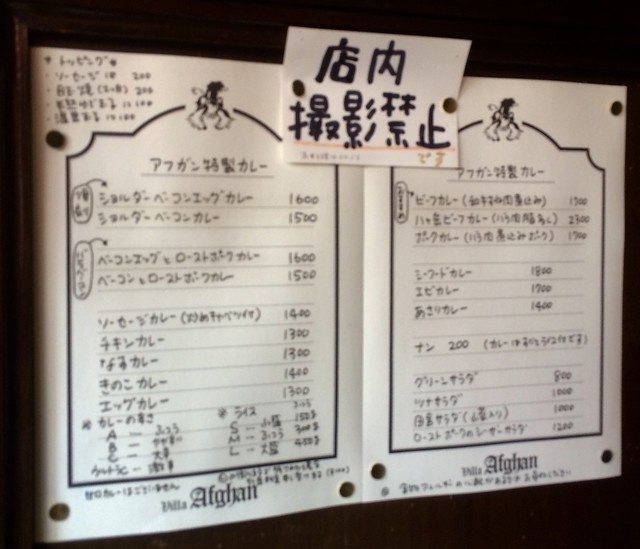 店内
撮影禁止
です
トッピング
・ソーセージ1本 200
200
100
100
アフガン特製カレー
ショルダーベーコンエッグカレー 1600
ショルダーベーコンカレー 1500
ベーコンエッグとローストポークカレー 1600
ベーコンとローストポークカレー 1500
ソーセージカレー(炒めキャベツ付) 1400
チキンカレー 1300
なすカレー 1300
きのこカレー 1400
エッグカレー 1300
※カレーの辛さ
A ー ふつう
B ー やや辛い
C ー 大辛
ウルトラC ー 激辛
※ライス
S ー 小盛 150g
M ー ふつう 300g
L ー 大盛 450g
甘口カレーはございません
Villa Afghan
アフガン特製カレー
おすすめ
ビーフカレー(和牛すね肉煮込み) 1900
八ヶ岳ビーフカレー 2300
ポークカレー 1700
シーフードカレー 1800
エビカレー 1700
あさりカレー 1400
ナン 200
グリーンサラダ 800
ツナサラダ 1000
田舎サラダ 1000
ローストポークのシーザーサラダ 1200
Villa Afghan